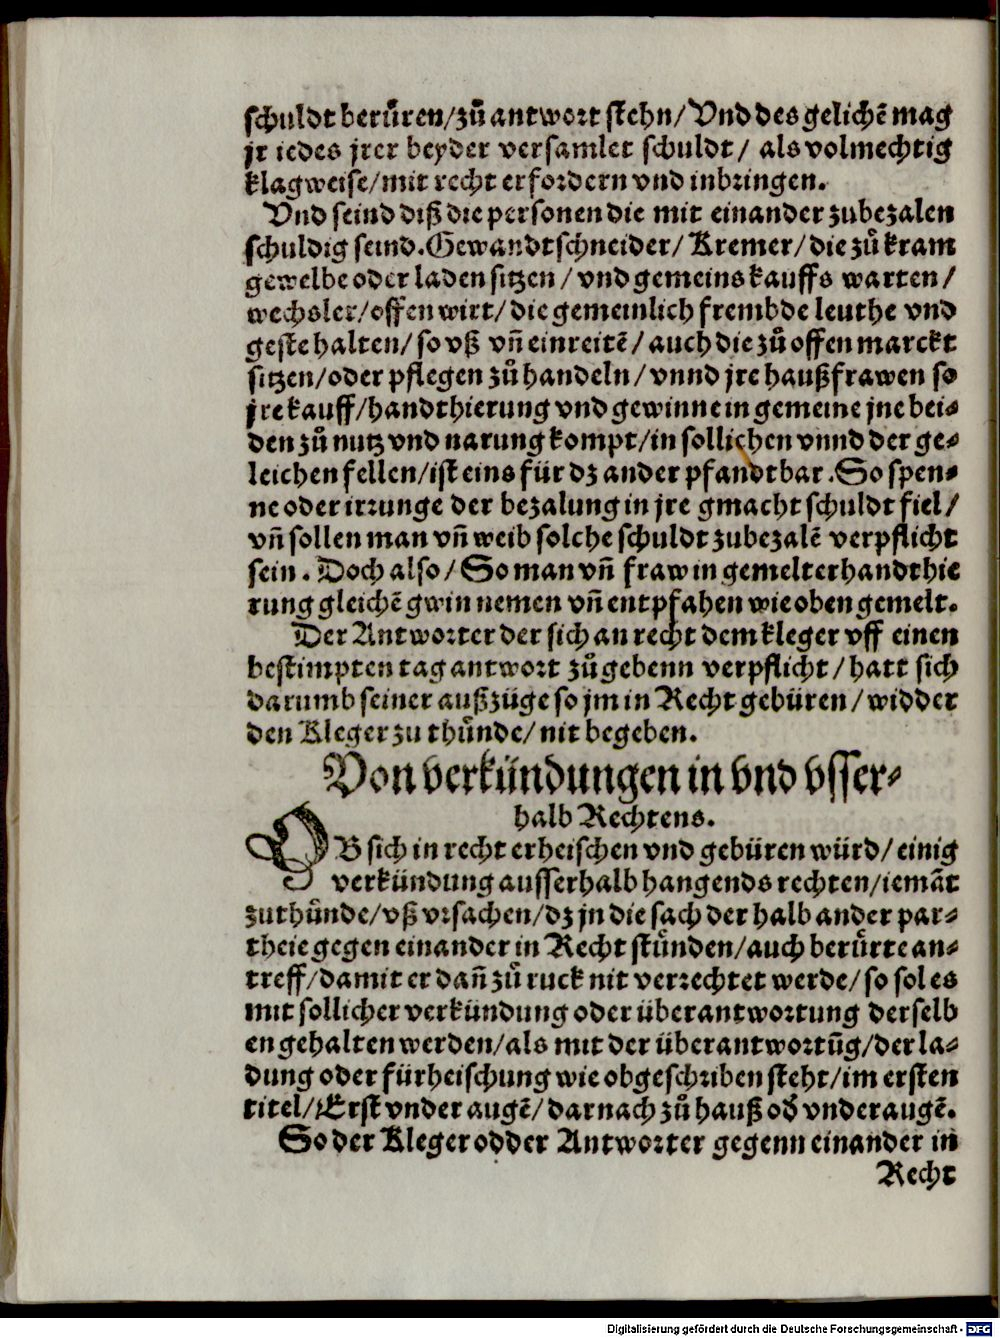 schuldt berůren/zů antwort stehn/Vnd des gelichẽ mag
jr iedes jrer beyder versamlet schuldt/ als volmechtig
klagweise/mit recht erfordern vnd inbringen.
Vnd seind diß die personen die mit einander zubezalen
schuldig seind.Gewandtschneider/ Kremer/ die zů kram
gewelbe oder laden sitzen/ vnd gemeins kauffs warten/
wechsler/offen wirt/ die gemeinlich frembde leuthe vnd
geste halten/ so vß vñ einreitẽ/ auch die zů offen marckt
sitzen/oder pflegen zů handeln/ vnnd jre haußfrawen so
jre kauff/handthierung vnd gewinne in gemeine jne bei⸗
den zů nutz vnd narung kompt/in sollichen vnnd der ge⸗
leichen fellen/ist eins für dz ander pfandtbar.So spen⸗
ne oder irrunge der bezalung in jre gmacht schuldt fiel/
vñ sollen man vñ weib solche schuldt zubezalẽ verpflicht
sein. Doch also/ So man vñ fraw in gemelter handthie
rung gleichẽ gwin nemen vñ entpfahen wie oben gemelt.
Der Antworter der sich an recht dem kleger vff einen
bestimpten tag antwort zů gebenn verpflicht/ hatt sich
darumb seiner außzüge so jm in Recht gebüren/ widder
den Kleger zu thůnde/ nit begeben.
Von verkündungen in vnd vsser⸗
halb Rechtens.
OB sich in recht erheischen vnd gebüren würd/ einig
verkündung ausserhalb hangends rechten/iemãt
zuthůnde/vß vrsachen/dz jn die sach der halb ander par⸗
theie gegen einander in Recht stůnden/auch berůrte an⸗
treff/damit er dañ zů ruck nit verrechtet werde/ so sol es
mit sollicher verkündung oder überantwortung derselb
en gehalten werden/als mit der überantwortũg/der la⸗
dung oder fürheischung wie obgeschriben steht/im ersten
titel/Erst vnder augẽ/darnach zů hauß oď vnderaugẽ.
So der Kleger odder Antworter gegenn einander in
Recht
Digitalisierung gefördert durch die Deutsche Forschungsgemeinschaft - DFG